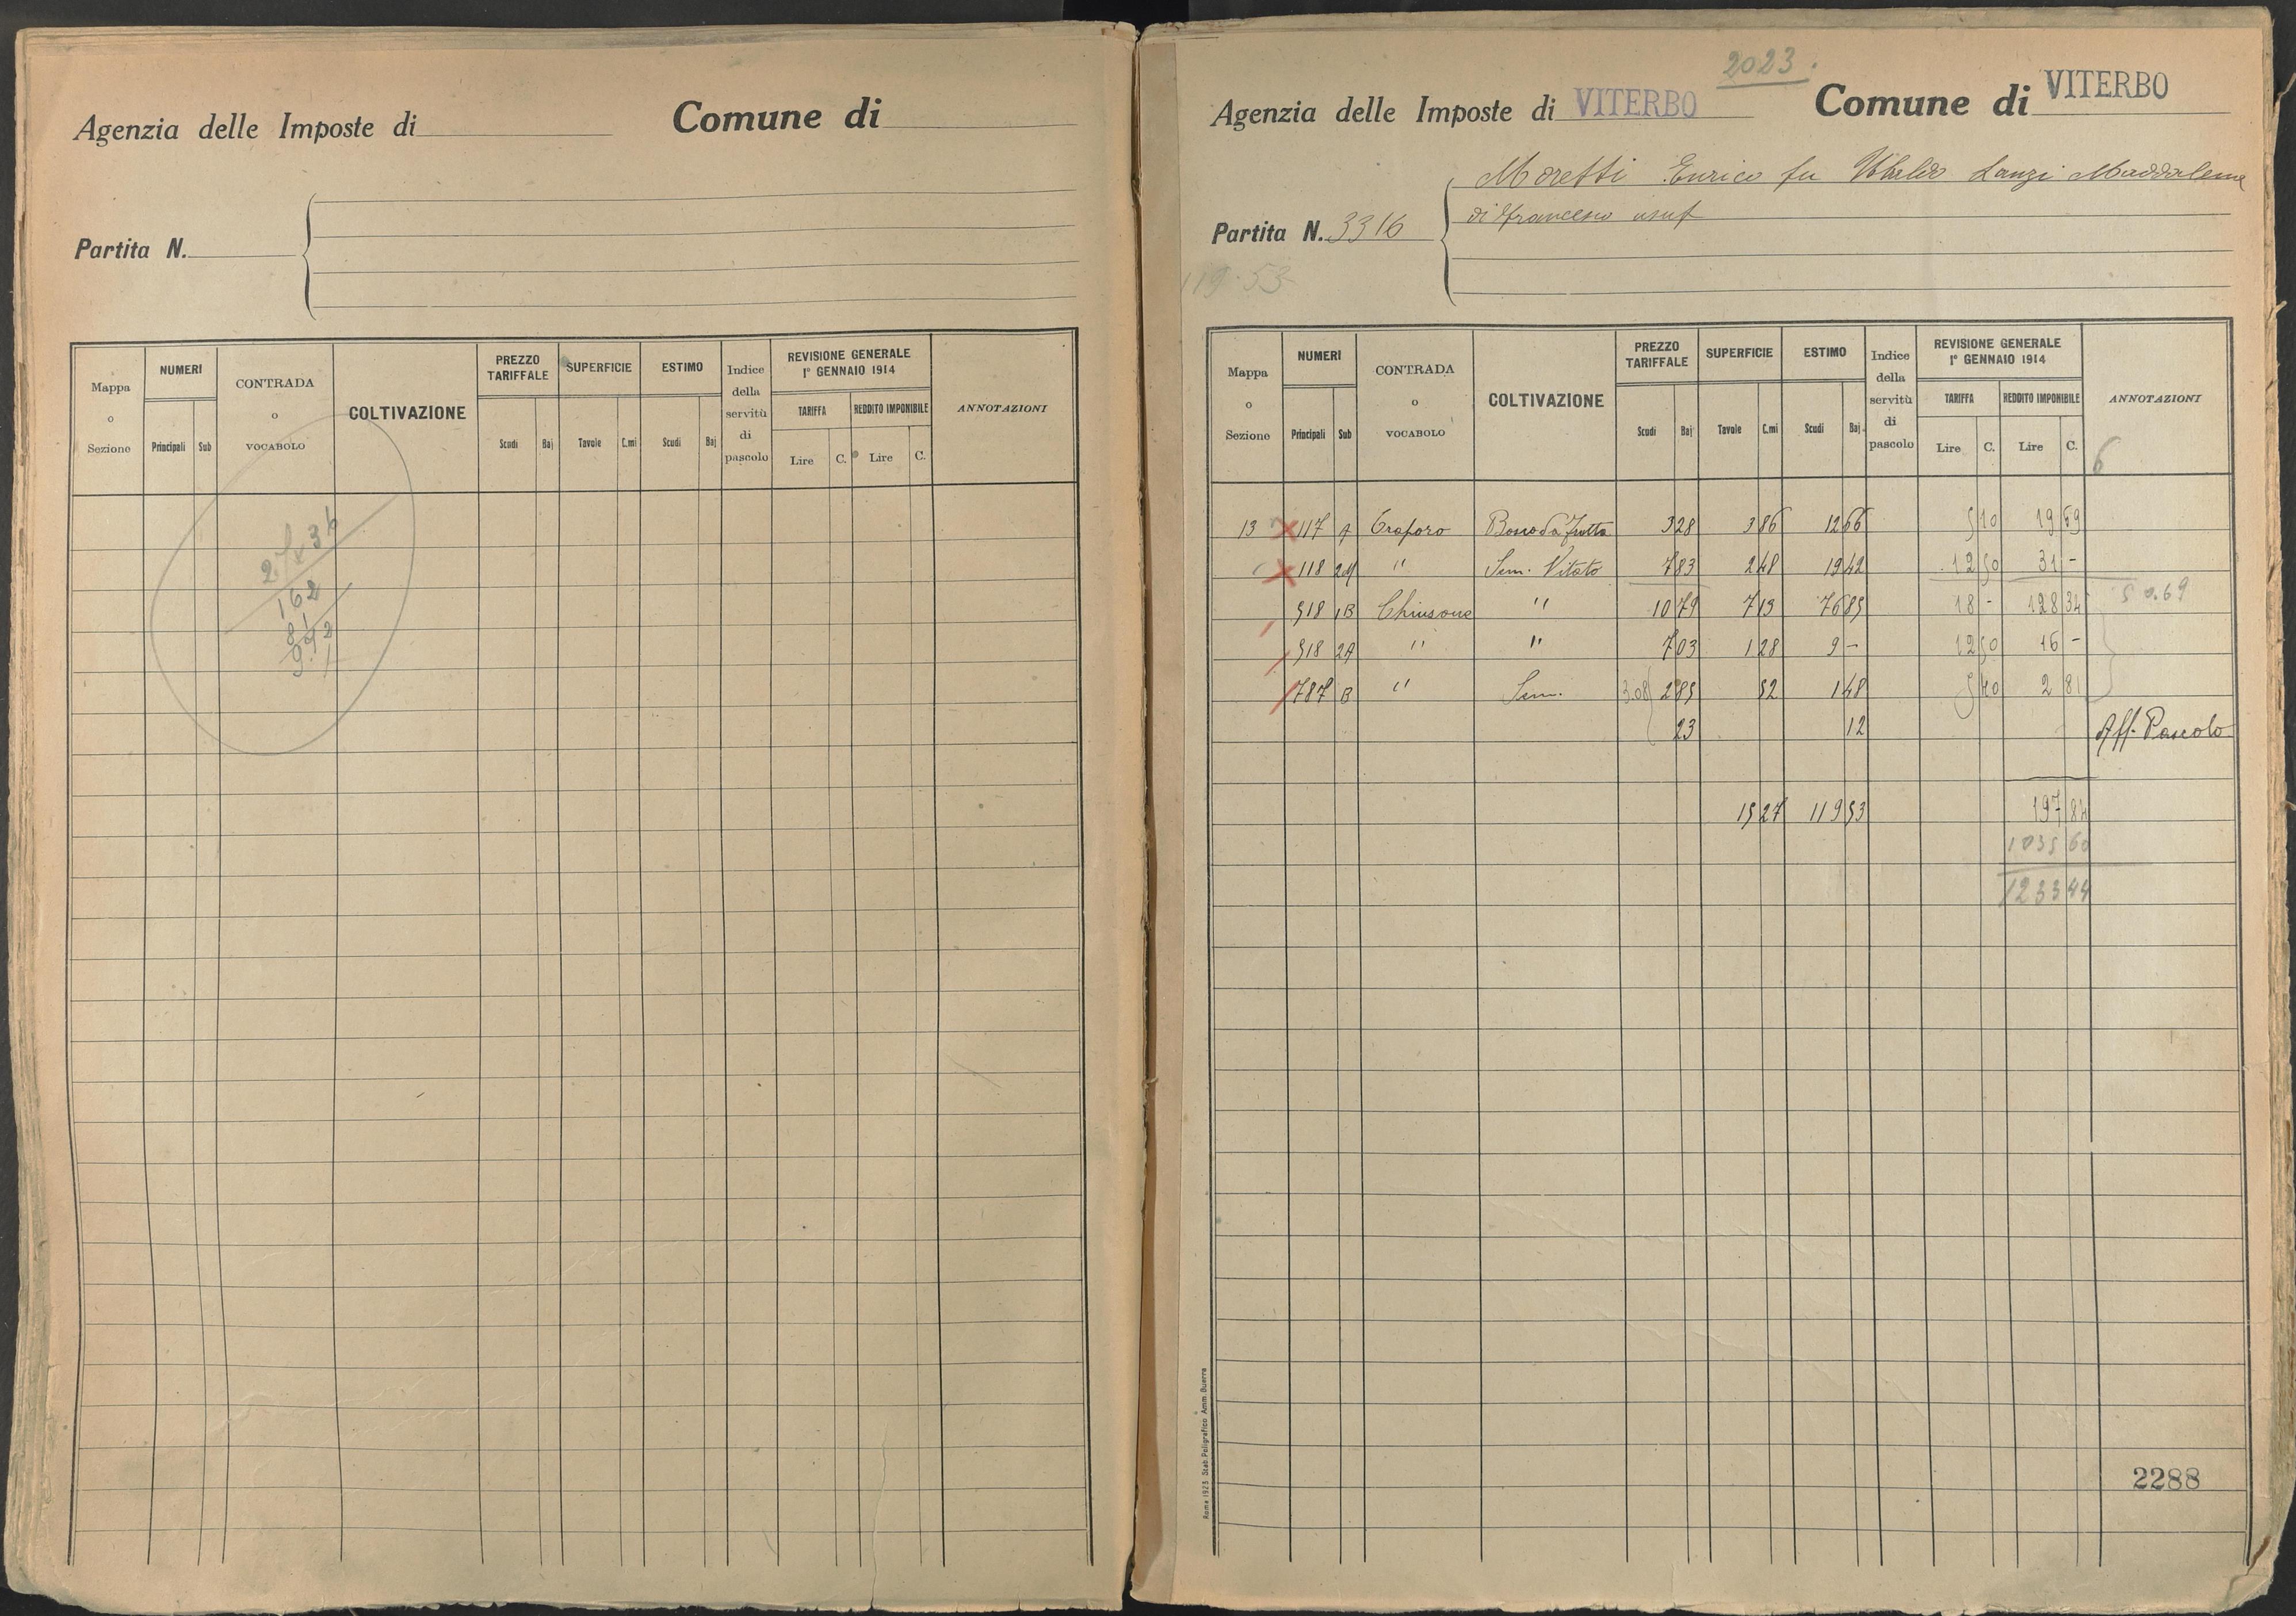 Agenzia delle Imposte di
Comune di
Partita N.
Mappa o Sezione
NUMERI
Principali Sub
CONTRADA o VOCABOLO
COLTIVAZIONE
PREZZO TARIFFALE
Scudi Baj
SUPERFICIE
Tavole C.mi
ESTIMO
Scudi Baj
Indice della servitù di pascolo
REVISIONE GENERALE 1° GENNAIO 1914
TARIFFA REDDITO IMPONIBILE
Lire C. Lire C.
ANNOTAZIONI
162
2023.
Agenzia delle Imposte di VITERBO
Comune di VITERBO
Moretti Enrico fu Ubaldo Lanzi Maddalena
di Francesco usuf
Partita N. 3316
119.53
Mappa o Sezione
NUMERI
Principali Sub
CONTRADA o VOCABOLO
COLTIVAZIONE
PREZZO TARIFFALE
Scudi Baj
SUPERFICIE
Tavole C.mi
ESTIMO
Scudi Baj
Indice della servitù di pascolo
REVISIONE GENERALE 1° GENNAIO 1914
TARIFFA REDDITO IMPONIBILE
Lire C. Lire C.
ANNOTAZIONI
6
13 117 A Traforo Bosco da frutto 3 28 3 86 12 66 5 10 19 69
118 2 " Sem. Vitato 7 83 2 48 19 42 12 50 31 -
518 1B Chiusone " 10 79 7 13 76 85 18 - 128 34
518 2A " " 7 03 1 28 9 - 12 50 16 -
787 B " Sem. 3.08 2 85 52 1 48 5 40 2 81
23 12 Aff. Pascolo
15 27 119 53 197 84
1035 60
1233 44
2288
Roma 1923 Stab. Poligrafico Amm. Guerra